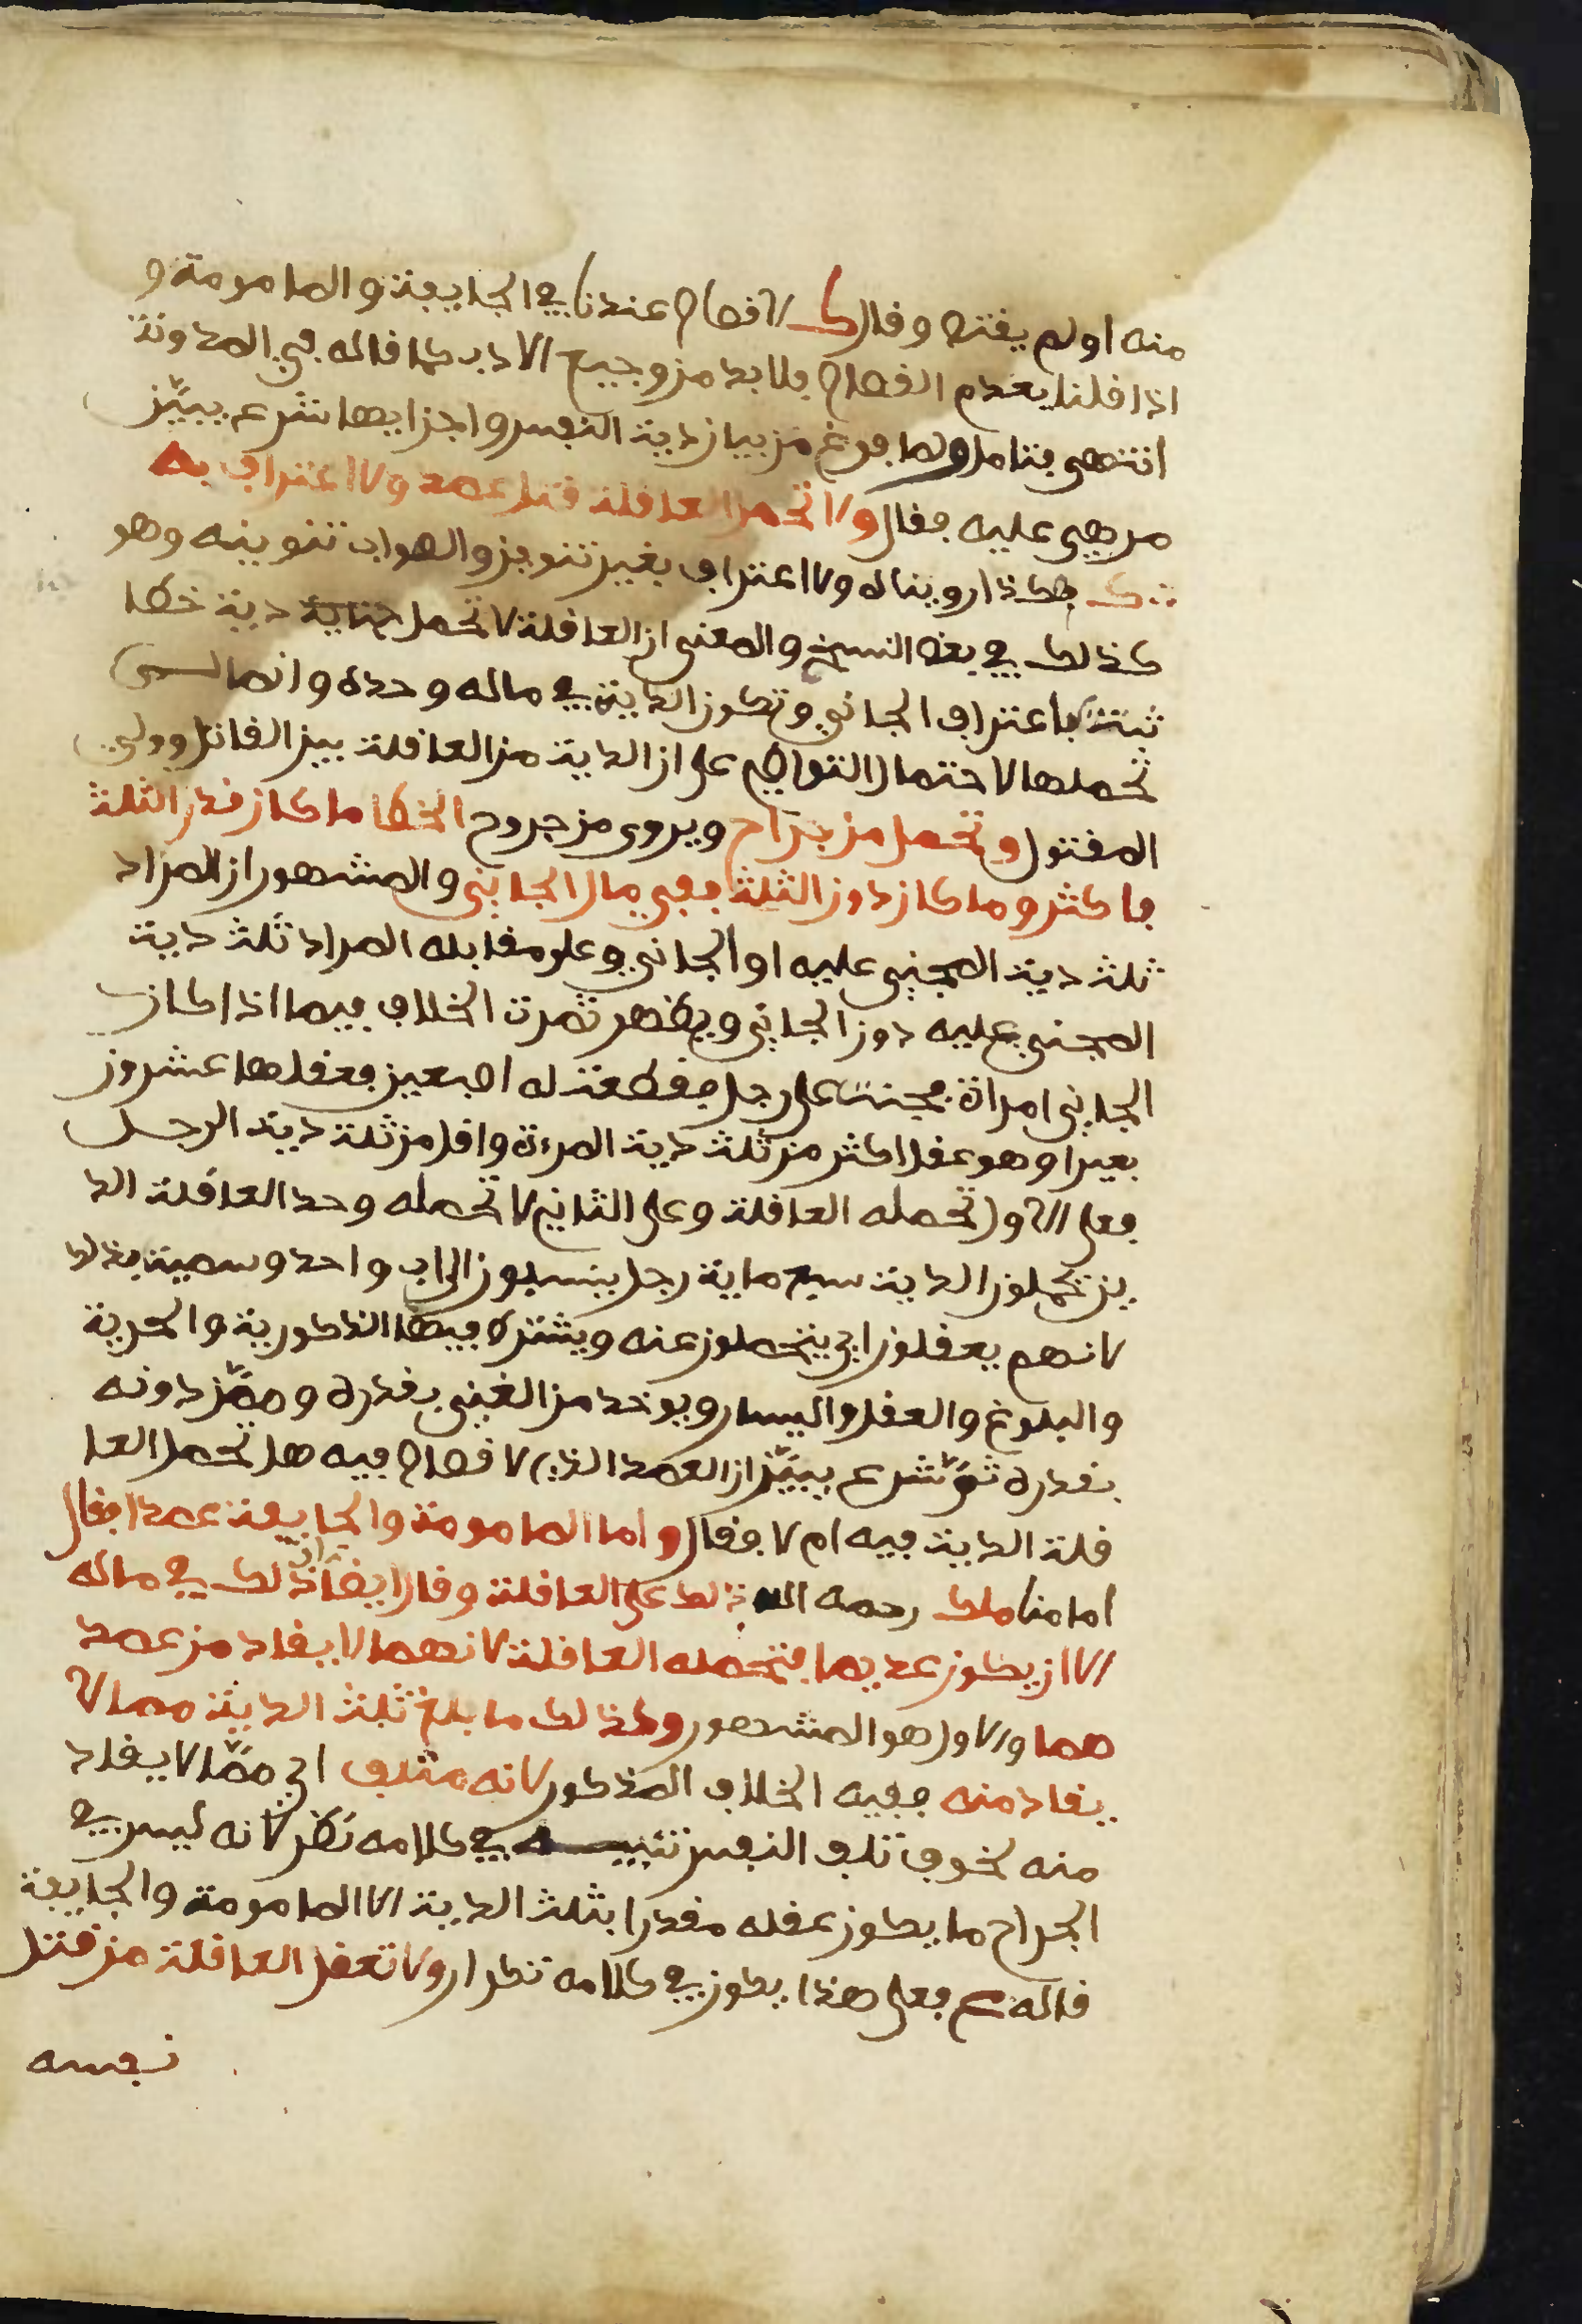 منه او لم يقتص وقال ك لا قصاص عندنا في الجايفة والمامومة و
اذا قلنا بعدم القصاص فلا بد من وجيع الادب كما قاله في المدونة
انتهى فتامل ولما فرغ من بيان دية النفس واجزايها شرع يبين
من هي عليه فقال ولا تحمل العاقلة قتل عمد ولا اعترافا به
ك هكذا رويناه ولا اعتراف بغير تنوين والصواب تنوينه وهو
كذلك في بعض النسخ والمعنى ان العاقلة لا تحمل دية خطا
ثبتت باعتراف الجاني وتكون الدية في ماله وحده وانما لم
تحملها لاحتمال التواطي على ان الدية من العاقلة بين القاتل وولي
المقتول وتحمل من جراح ويروى من جروح الخطا ما كان قدر الثلث
فاكثر وما كان دون الثلث ففي مال الجاني والمشهور ان المراد
ثلث دية المجني عليه او الجاني وعلى مقابله المراد ثلث دية
المجني عليه دون الجاني ويظهر ثمرت الخلاف فيما اذا كان
الجاني امراة فجنت على رجل فقطعت له اصبعين فعقلها عشرون
بعيرا وهو عقل اكثر من ثلث دية المرءة واقل من ثلث دية الرجل
فعلى الاول تحمله العاقلة وعلى الثاني لا تحمله وحد العاقلة الذ
ين تحملون الدية سبع ماية رجل ينسبون الى اب واحد وسميت بذلك
لانهم يعقلون اي يتحملون عنه ويشترط فيها الذكورية والحرية
والبلوغ والعقل واليسار ويوخذ من الغني بقدره وممن دونه
بقدره ثم شرع يبين ان العمد الذي لا قصاص فيه هل تحمل العا
قلة الدية فيه ام لا فقال واما المامومة والجايفة عمدا فقال
امامنا ملك رحمه الله ذلك على العاقلة وقال ايضا ان ذلك في ماله
الا ان يكون عديما فتحمله العاقلة لانهما لا يقاد من عمد
هما والاول هو المشهور وكذلك ما بلغ ثلث الدية مما لا
يقاد منه ففيه الخلاف المذكور لانه متلف اي مما لا يقاد
منه لخوف تلف النفس تنبيه في كلامه نظر لانه ليس في
الجراح ما يكون عقله مقدرا بثلث الدية الا المامومة والجايفة
قاله ع فعلى هذا يكون في كلامه تكرار ولا تعقل العاقلة من قتل
نفسه